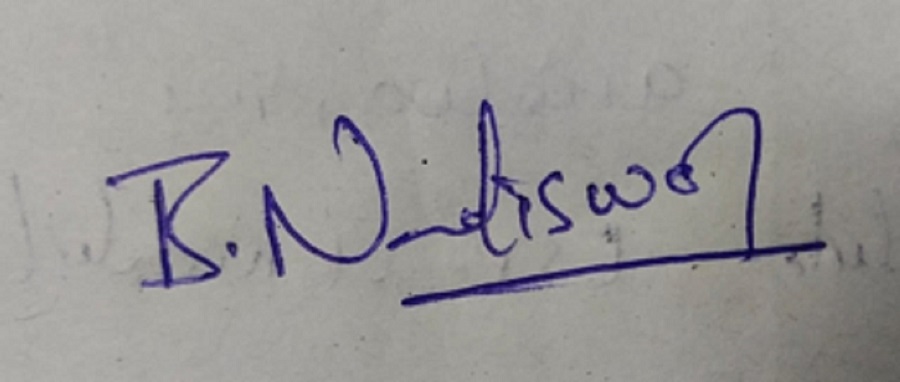 B. Nandiswar